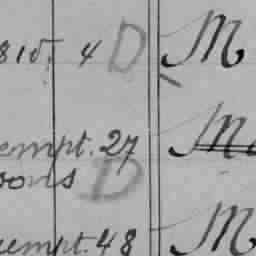 815. 4 D M
empt. 27 Mc
sons D
empt. 48 M